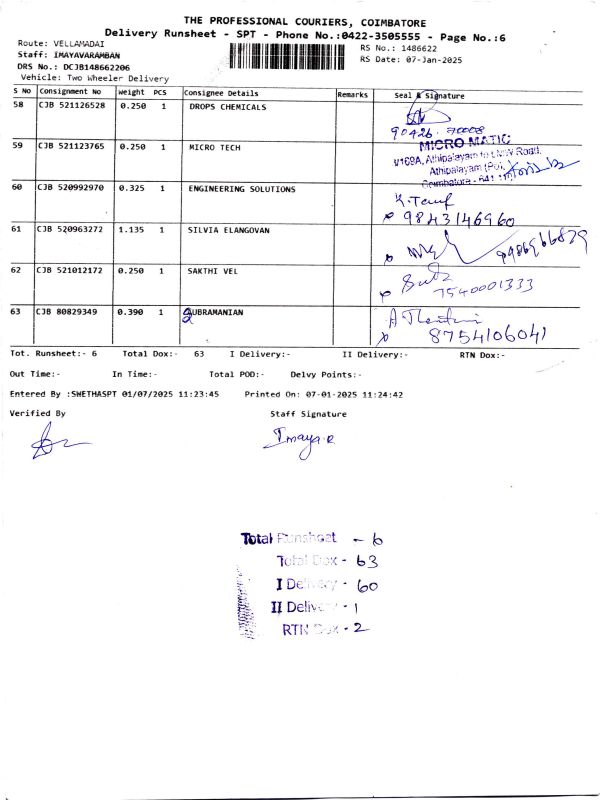 THE PROFESSIONAL COURIERS, COIMBATORE
Delivery Runsheet - SPT - Phone No.:0422-3505555 - Page No.:6
Route: VELLAMADAI
RS No.: 1486622
Staff: IMAYAVARAMBAN
RS Date: 07-Jan-2025
DRS No.: DCJB148662206
Vehicle: Two Wheeler Delivery
S No Consignment No Weight PCS Consignee Details Remarks Seal & Signature
58 CJB 521126528 0.250 1 DROPS CHEMICALS
90426 70008
59 CJB 521123765 0.250 1 MICRO TECH
MICRO MATIC
V/169A, Athipalayam to LMW Road,
Athipalayam (Po),
Coimbatore - 641 110
60 CJB 520992970 0.325 1 ENGINEERING SOLUTIONS
9843146960
61 CJB 520963272 1.135 1 SILVIA ELANGOVAN
62 CJB 521012172 0.250 1 SAKTHI VEL
7540001333
63 CJB 80829349 0.390 1 SUBRAMANIAN
8754106041
Tot. Runsheet:- 6 Total Dox:- 63 I Delivery:- II Delivery:- RTN Dox:-
Out Time:- In Time:- Total POD:- Delvy Points:-
Entered By :SWETHASPT 01/07/2025 11:23:45 Printed On: 07-01-2025 11:24:42
Verified By Staff Signature
Imaya.R
Total Runsheet - 6
Total Dox - 63
I Delivery - 60
II Delivery - 1
RTN Dox - 2